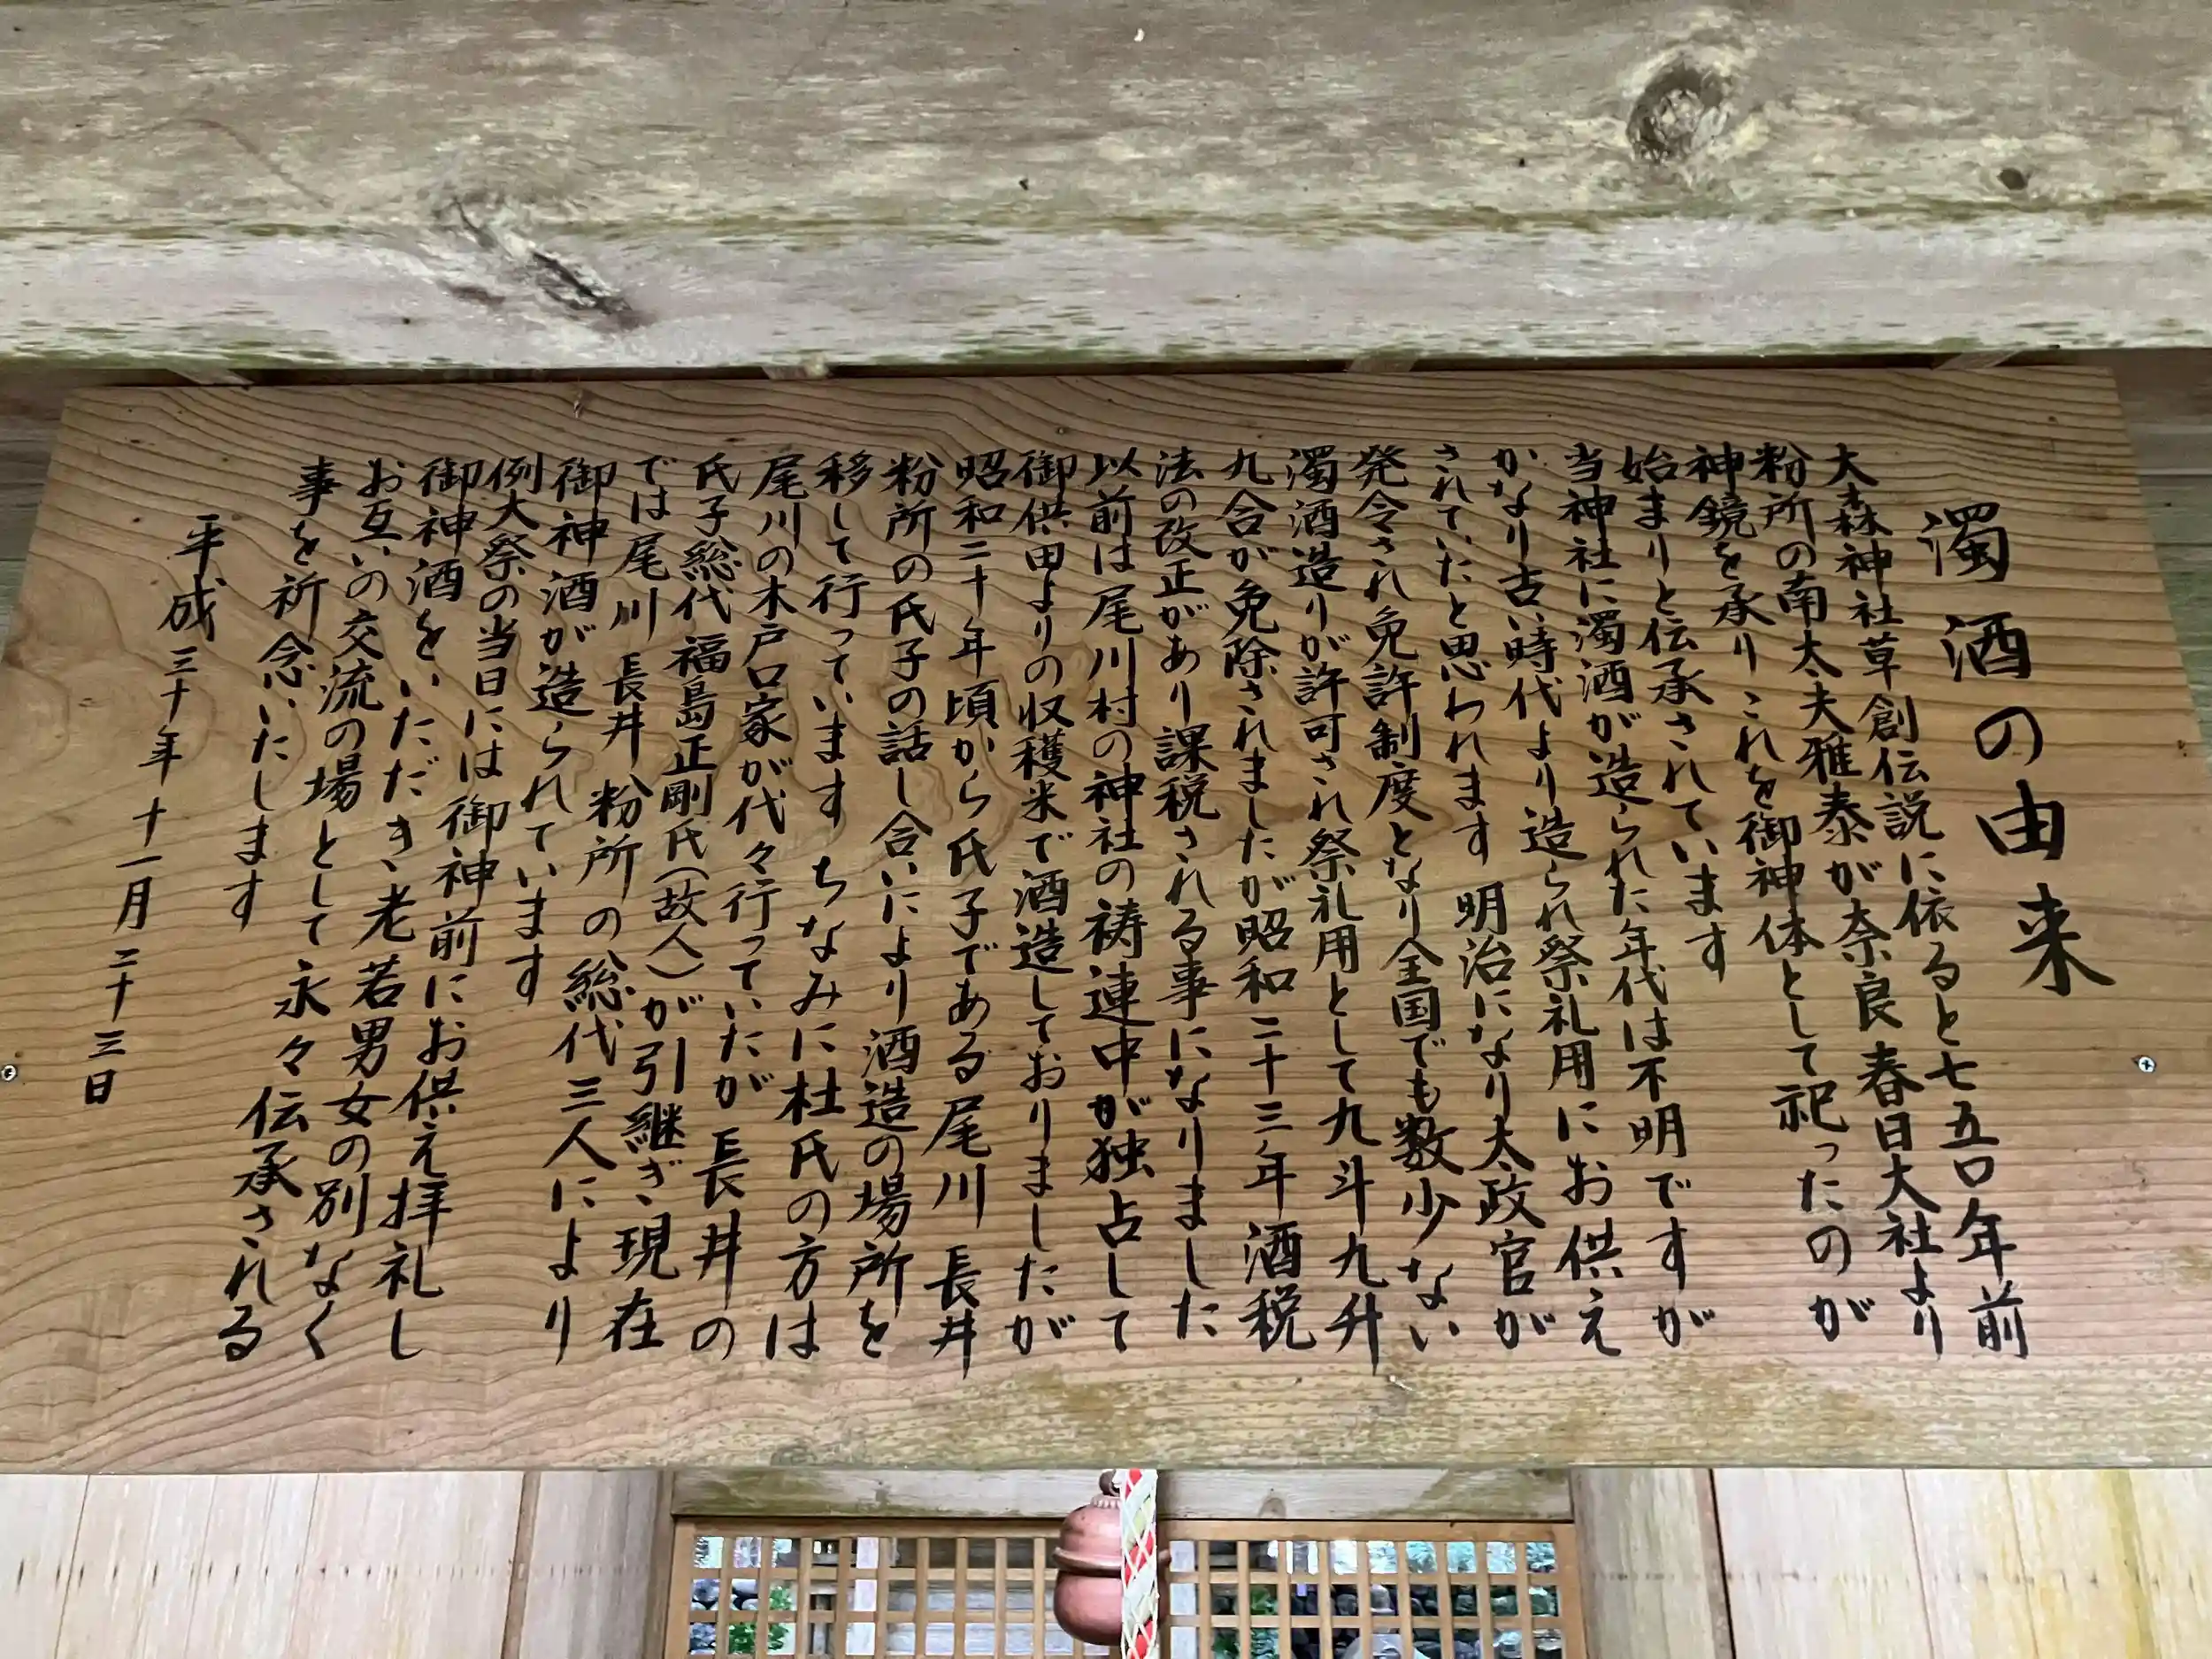 濁酒の由来
大森神社草創伝説に依ると七五〇年前
粉所の南太夫雅泰が奈良春日大社より
神鏡を承りこれを御神体として祀ったのが
始まりと伝承されています
当神社に濁酒が造られた年代は不明ですが
かなり古い時代より造られ祭礼用にお供え
されていたと思われます 明治になり太政官が
発令され免許制度となり全国でも数少ない
濁酒造りが許可され祭礼用として九斗九升
九合が免除されましたが昭和二十三年酒税
法の改正があり課税される事になりました
以前は尾川村の神社の祷連中が独占して
御供田よりの収穫米で酒造しておりましたが
昭和二十年頃から氏子である尾川 長井
粉所の氏子の話し合いにより酒造の場所を
移して行っています ちなみに杜氏の方は
尾川の木戸口家が代々行っていたが 長井の
氏子総代 福島正剛氏(故人)が引継ぎ、現在
では尾川 長井 粉所の総代三人により
御神酒が造られています
例大祭の当日には御神前にお供え拝礼し
御神酒をいただき、老若男女の別なく
お互いの交流の場として永々伝承される
事を祈念いたします
平成三十年十一月二十三日